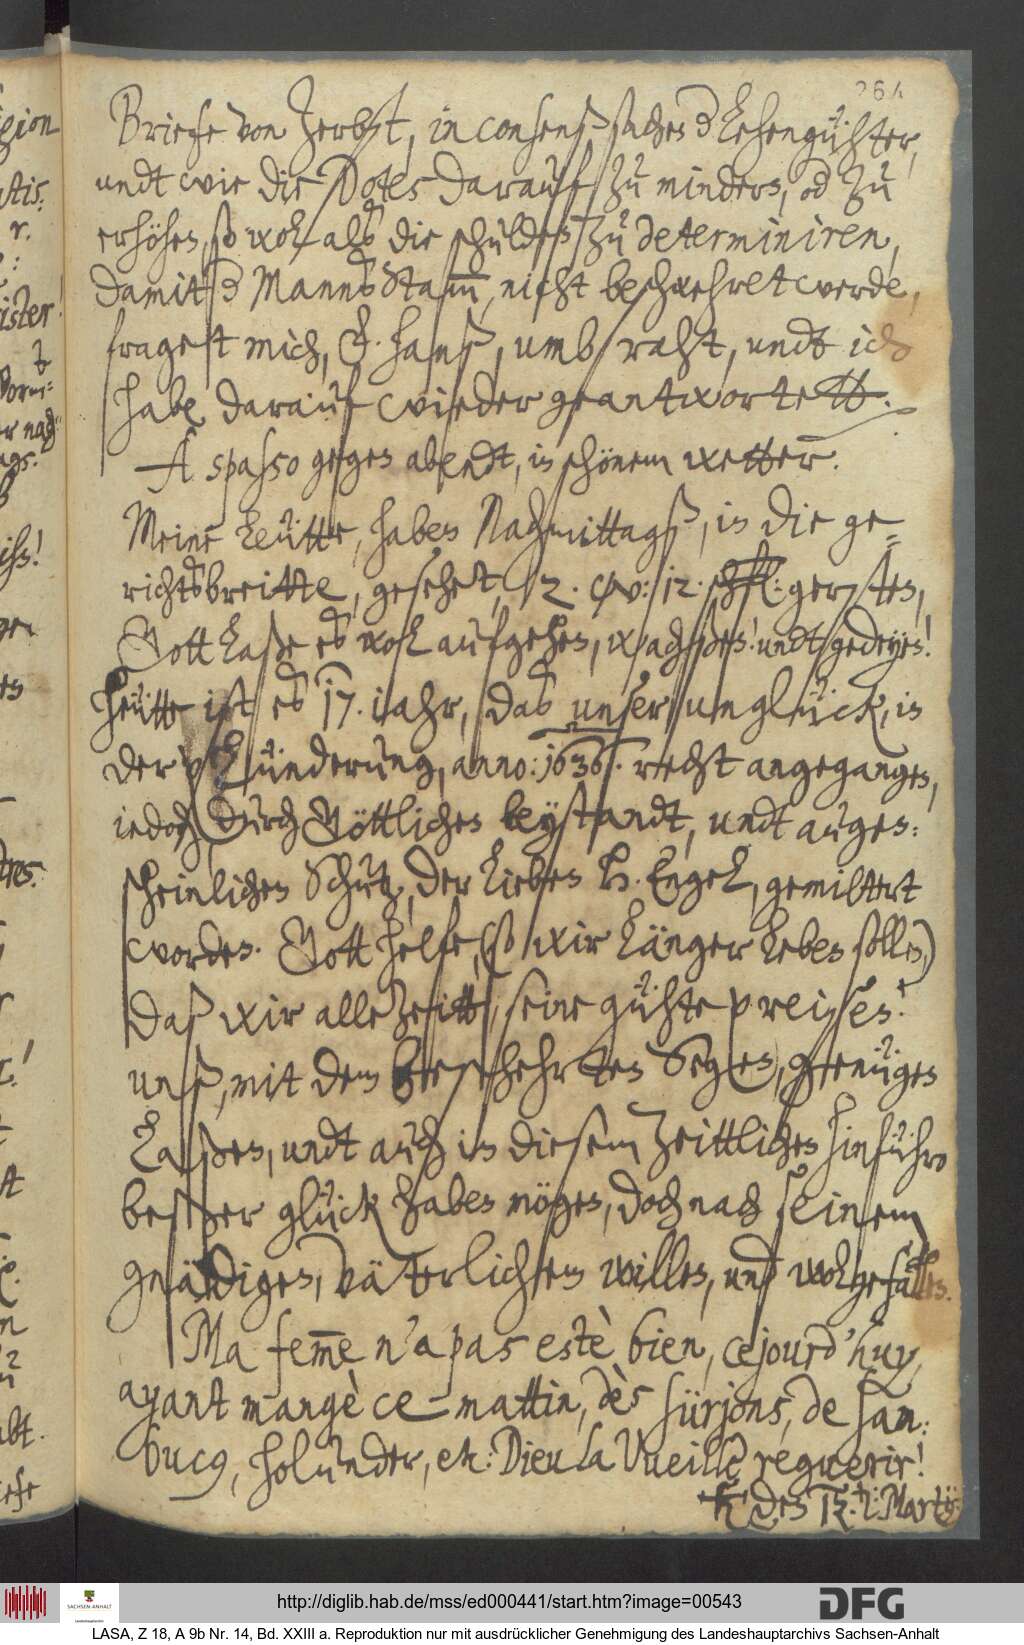 264
Briefe von Zerbst, in consenß sachen d Lehengühter,
undt wie die Dotes darauf zu mindern, od zu
erhöhen, so wol alß die schulden zu determiniren,
damit d Manns Stam̅, nicht beschwehret werde,
fraget mich, F. Hanß, umb raht, undt ich
habe darauf wieder geantwortett.
A spasso gegen abendt, in schönem wetter.
Meine Leütte, haben Nachmittagß, in die ge=
richtsbreitte, gesehet, 2. W: 12. schfl: gersten,
Gott laße es wol aufgehen, wachßen! undt gedeyen!
Heütte ist es 17. iahr, das unser unglück, in
der plünderung, anno: 1636. recht angegangen,
iedoch durch Göttlichen beystandt, undt augen:
scheinlichen Schutz, der lieben h. Engel, gemiltert
worden. Gott helfe, (so wir länger leben sollen)
daß wir alle Zeitt, seine gühte preisen!
unß, mit dem beschehrten Segen, genügen
laßen, undt auch in diesem Zeittlichen hinführo
beßer glück haben mögen, doch nach seinem
gnädigen, väterlichem willen, und wolgefallen.
Ma fem̅e n'a pas estè bien, cejourd'huy,
ayant mangè ce-mattin, dès sürjons, de san:
bucq, holunder, etc: Dieu la Vueille reguerir!
den 12. Martij:
http://diglib.hab.de/mss/ed000441/start.htm?image=00543
DFG
SACHSEN-ANHALT
LASA, Z 18, A 9b Nr. 14, Bd. XXIII a. Reproduktion nur mit ausdrücklicher Genehmigung des Landeshauptarchivs Sachsen-Anhalt